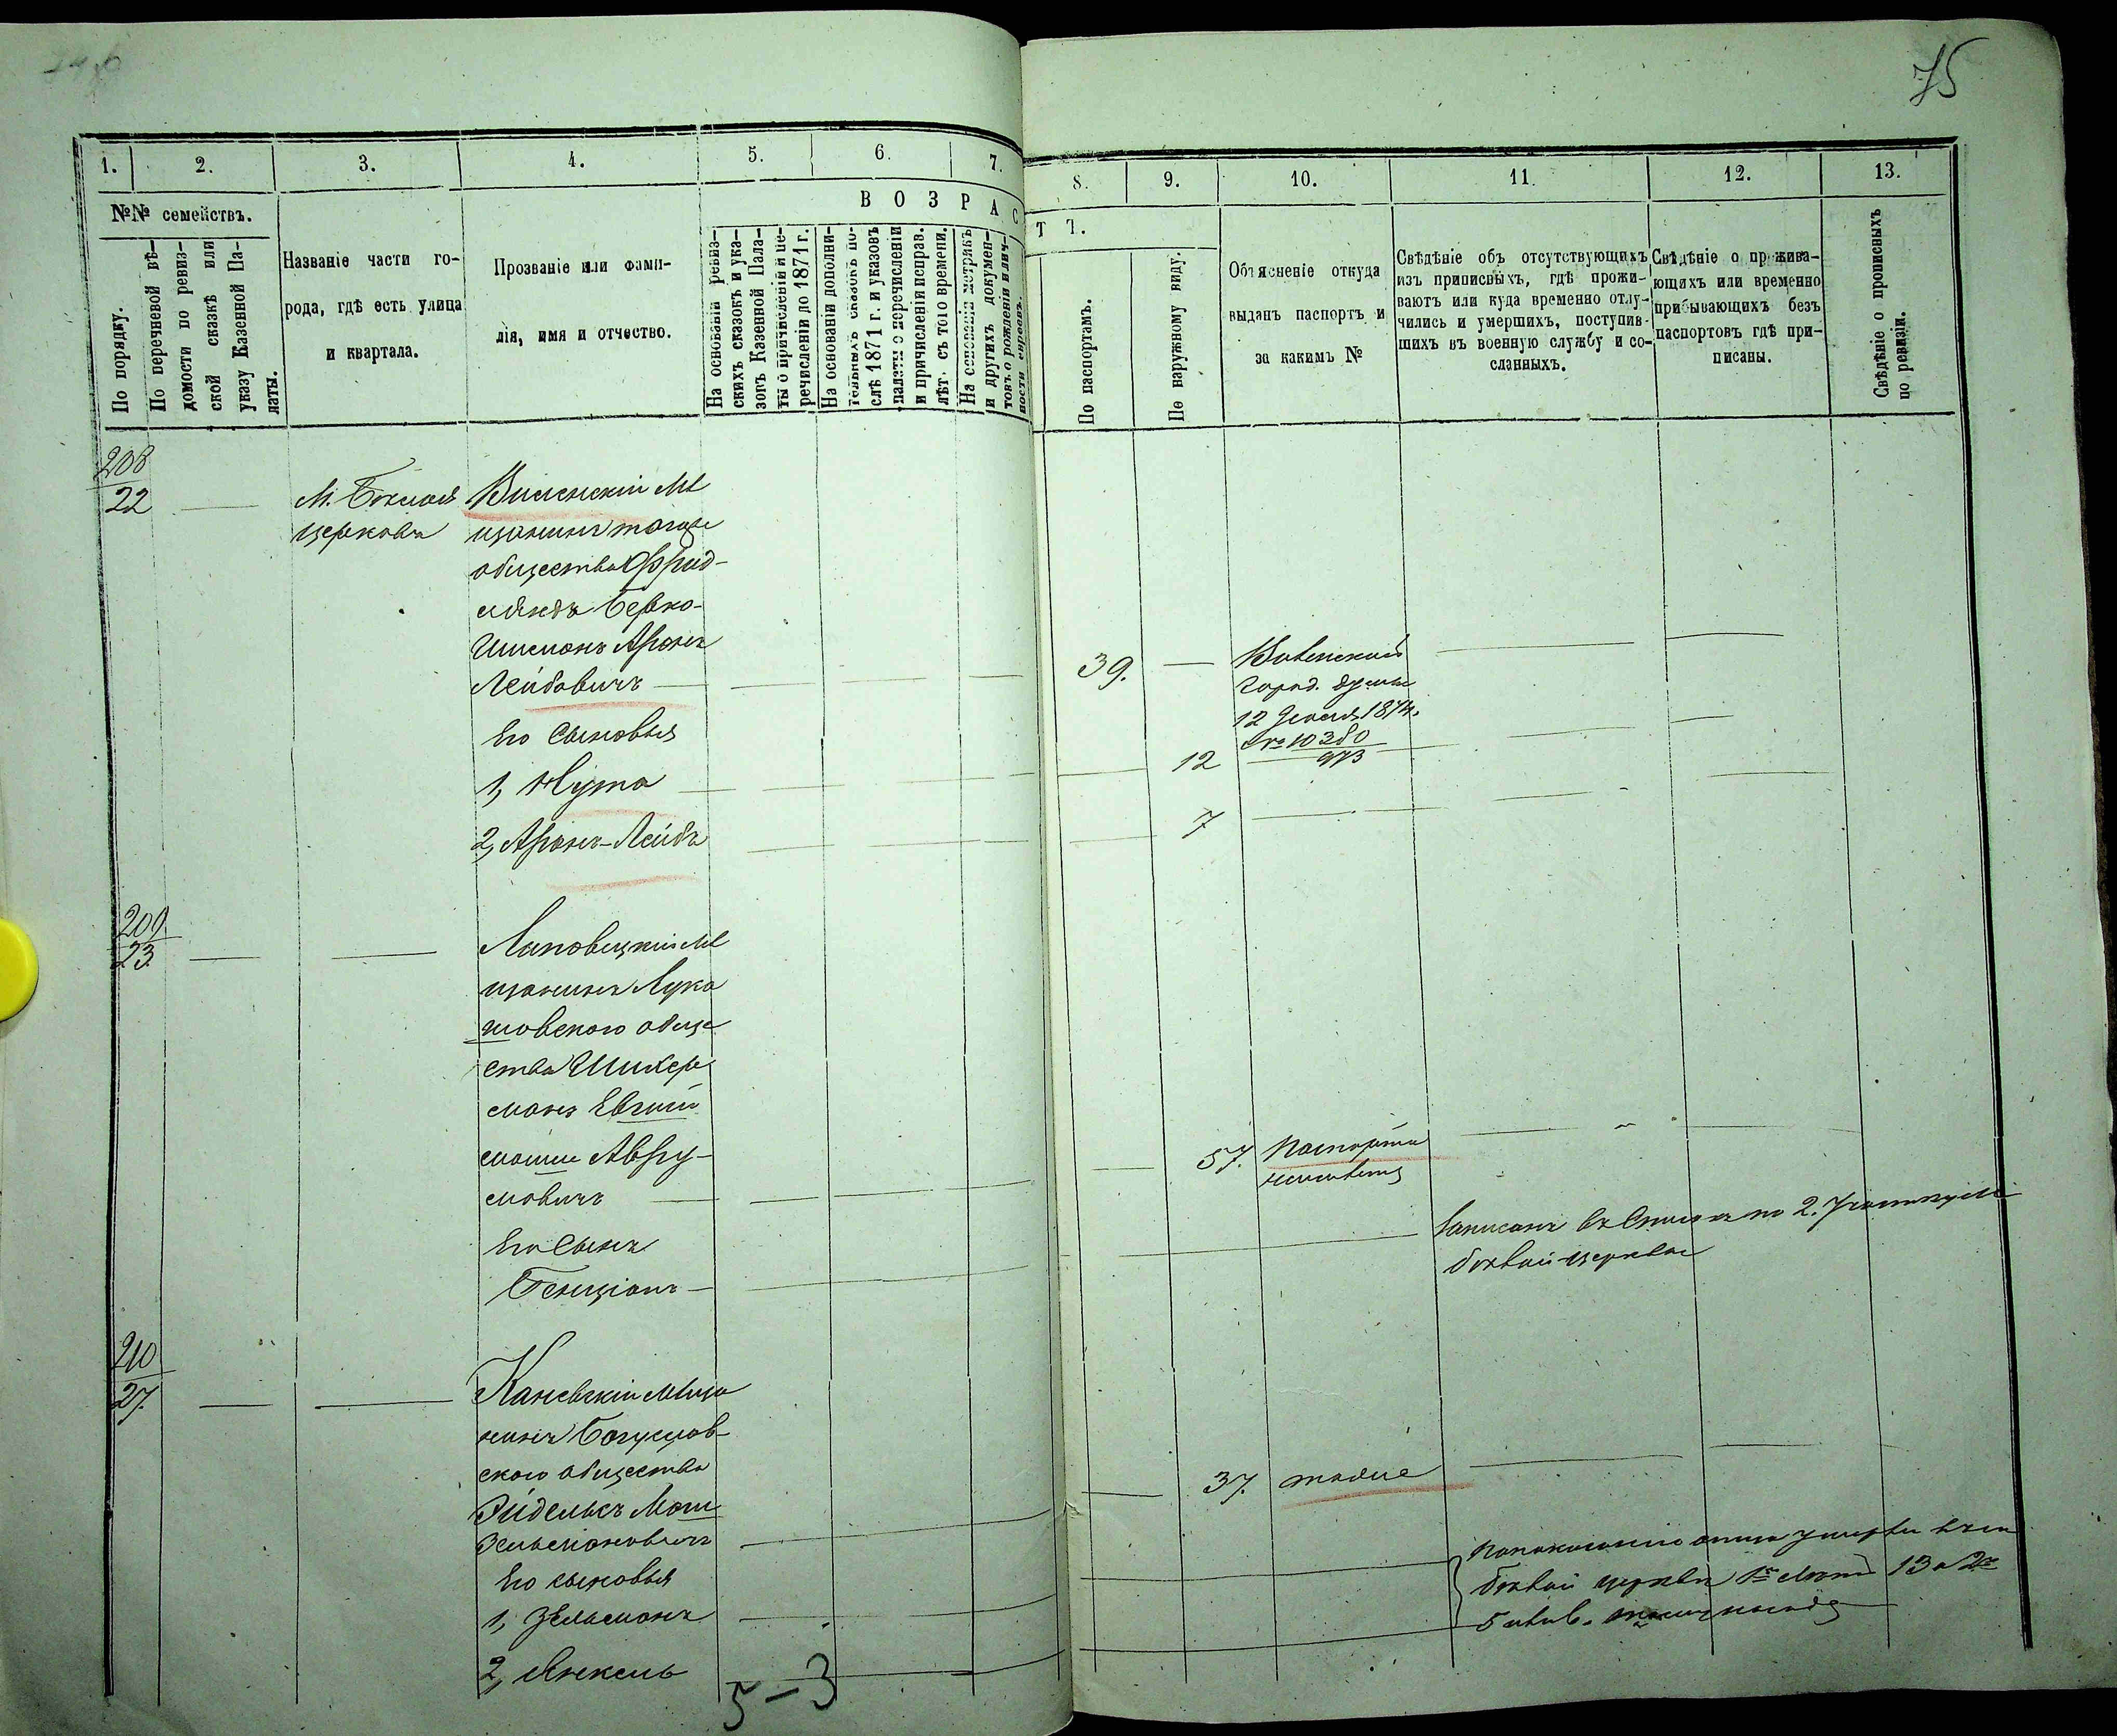 75
1. 2. 3. 4. 5. 6. 7. 8. 9. 10. 11. 12. 13.
№№ семействъ.
По порядку.
По перечневой вѣ-
домости по ревиз-
ской сказкѣ или
указу Казенной Па-
латы.
Названіе части го-
рода, гдѣ есть улица
и квартала.
Прозваніе или фами-
лія, имя и отчество.
ВОЗРАСТЪ.
На основаніи ревиз-
скихъ сказокъ и ука-
зовъ Казенной Пала-
ты о причисленіи и пе-
речисленіи до 1871 г.
На основаніи дополни-
тельныхъ сказокъ по-
слѣ 1871 г. и указовъ
палаты о перечисленіи
и причисленіи исправ.
лѣт. съ того времени.
На основаніи метрикъ
и другихъ докумен-
товъ о рожденіи и лич-
ности евреевъ.
По паспортамъ.
По наружному виду.
Объясненіе откуда
выданъ паспортъ и
за какимъ №
Свѣдѣніе объ отсутствующихъ
изъ приписныхъ, гдѣ прожи-
ваютъ или куда временно отлу-
чились и умершихъ, поступив-
шихъ въ военную службу и со-
сланныхъ.
Свѣдѣніе о прожива-
ющихъ или временно
прибывающихъ безъ
паспортовъ гдѣ при-
писаны.
Свѣдѣніе о прописныхъ
по ревизіи.
208
22
М. Божияя
церковь
Виленскій мѣ
щанинъ тогоже
общества Фрид-
ляндъ Берко-
Шлемонъ Аронъ
Лейбовичъ
39.
Виленской
город. думы
12 1874.
№ 10380
973
Его сыновья
1, Нута
12
2, Аронъ-Лейба
7
209
23
Липовецкій мѣ
щанинъ Лука
шовского обще
ства Шихер
манъ
Авру-
мовичъ
57. Паспорта
неимѣетъ
Его сынъ
Бенціонъ
Записанъ въ по 2. участку
божьей церквы
210
27.
Каневскій мѣща
нинъ Богуслав-
ского общества
Эйдельсъ Мош
Зельмановичъ
37. тоже
Его сыновья
1, Зельманъ
2, Янкель
отца умерли въ
божьей церкви 13 2го
5
5-3